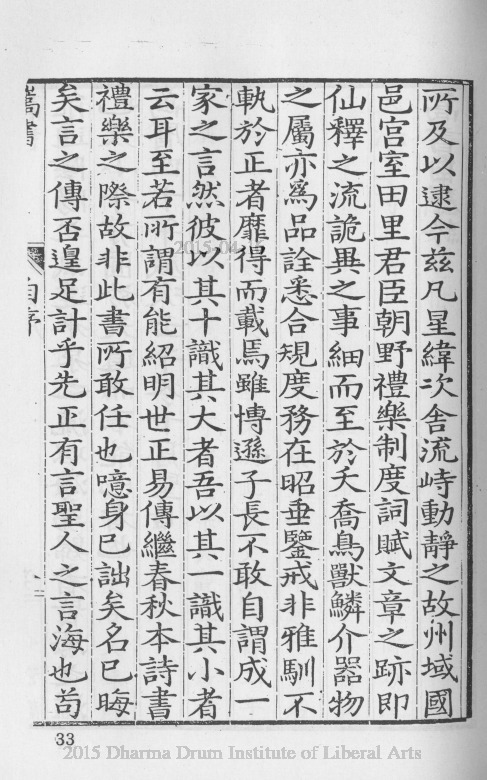 所及以逮今兹凡星緯次舍流峙動靜之故州域國
邑宫室田里君臣朝野禮樂制度詞賦文章之跡即
仙釋之流詭異之事細而至於夭喬鳥獸鱗介器物
之屬亦爲品詮悉合規度務在昭垂鑒戒非雅馴不
軌於正者靡得而載焉雖博遜子長不敢自謂成一
家之言然彼以其十識其大者吾以其一識其小者
云耳至若所謂有能紹明世正易傳繼春秋本詩書
禮樂之際故非此書所敢任也噫身已詘矣名已晦
矣言之傳否遑足計乎先正有言聖人之言海也苟
嵩書
自序
33
2015-04
2015 Dharma Drum Institute of Liberal Arts